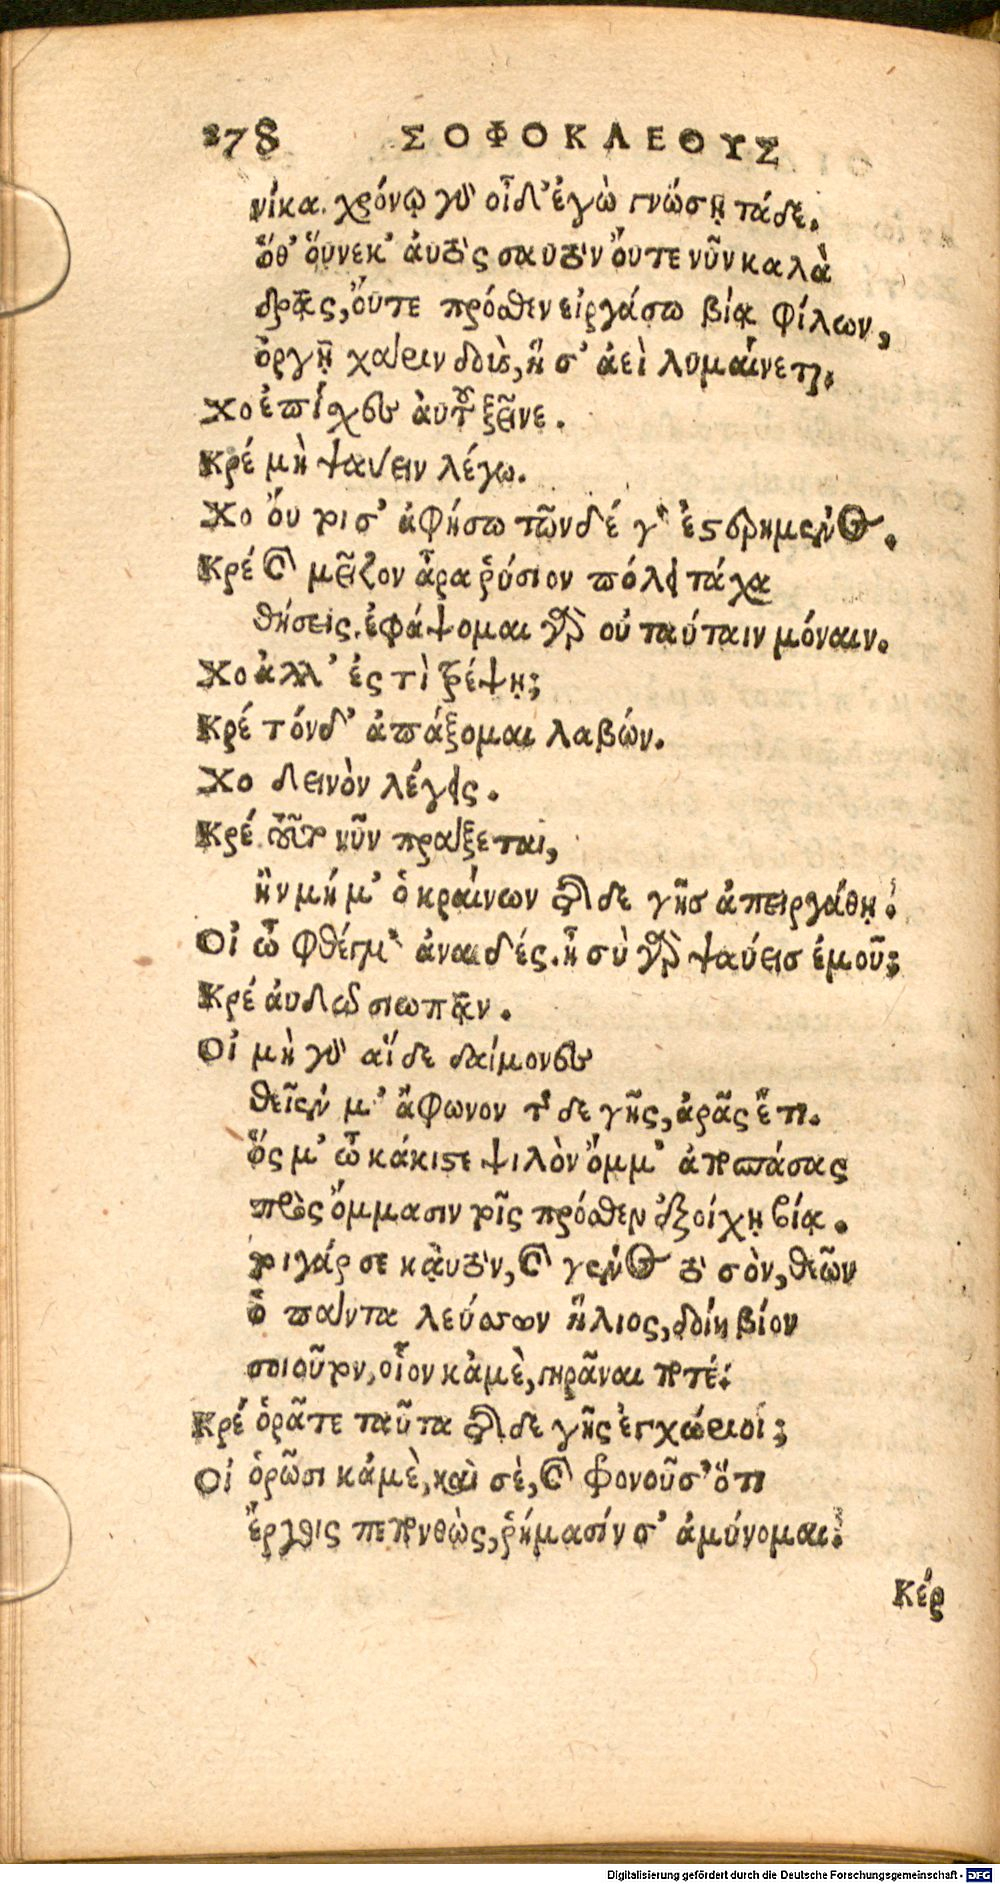 278 ΣΟΦΟΚΛΕΟΥΣ
νίκα. χρόνῳ γὸ οἶδ' ἐγὼ γνώσῃ τάδε.
ὅθ' ὅυνεκ' ἀυτὸς σαυτὸν ὄυτε νῦν καλὰ
δρᾷς, ὄυτε πρόσθεν εἰργάσω βίᾳ φίλων,
ὀργῇ χάριν δοὺς, ἥ σ' ἀεὶ λυμαίνεται.
Χο ἐπίχες ἀυτοῦ ξεῖνε.
Κρέ μὴ ψάυειν λέγω.
Χο ὄυ τοι σ' ἀφήσω τῶνδέ γ' ἐστρημένος.
Κρέ καὶ μεῖζον ἆρα ῥύσιον πόλει τάχα
θήσεις. ἐφάψομαι γὰρ οὐ ταύταιν μόναιν.
Χο ἀλλ' ἐς τὶ τρέψῃ;
Κρέ τόνδ' ἀπάξομαι λαβών.
Χο δεινὸν λέγεις.
Κρέ τοῦτο νῦν πράξεται,
ἤν μή μ' ὁ κραίνων τῆσδε γῆσ ἀπειργάθῃ.
Οἰ ὦ φθέγμ' ἀναιδές. ἦ σὺ γὰρ ψαύεισ ἐμοῦ;
Κρέ ἀυδῶ σιωπᾷν.
Οἰ μὴ γὸ αἵδε δαίμονες
θεῖέν μ' ἄφωνον τῆσδε γῆς, ἀρᾶς ἔτι.
ὅς μ' ὦ κάκιστε ψιλὸν ὄμμ' ἀποσπάσας
πρὸς ὄμμασιν τοῖς πρόσθεν ἐξοίχῃ βίᾳ.
τοιγάρ σε κᾀυτὸν, καὶ γένος τὸ σὸν, θεῶν
ὁ πάντα λεύσσων ἥλιος, δοίη βίον
τοιοῦτον, οἷον κἀμὲ, γηρᾶναι ποτέ.
Κρέ ὁρᾶτε ταῦτα τῆσδε γῆς ἐγχώριοι;
Οἰ ὁρῶσι κἀμὲ, καὶ σὲ, καὶ φρονοῦσ' ὅτι
ἔργοις πεπονθὼς, ῥήμασίν σ' ἀμύνομαι.
Κέρ
Digitalisierung gefördert durch die Deutsche Forschungsgemeinschaft - DFG